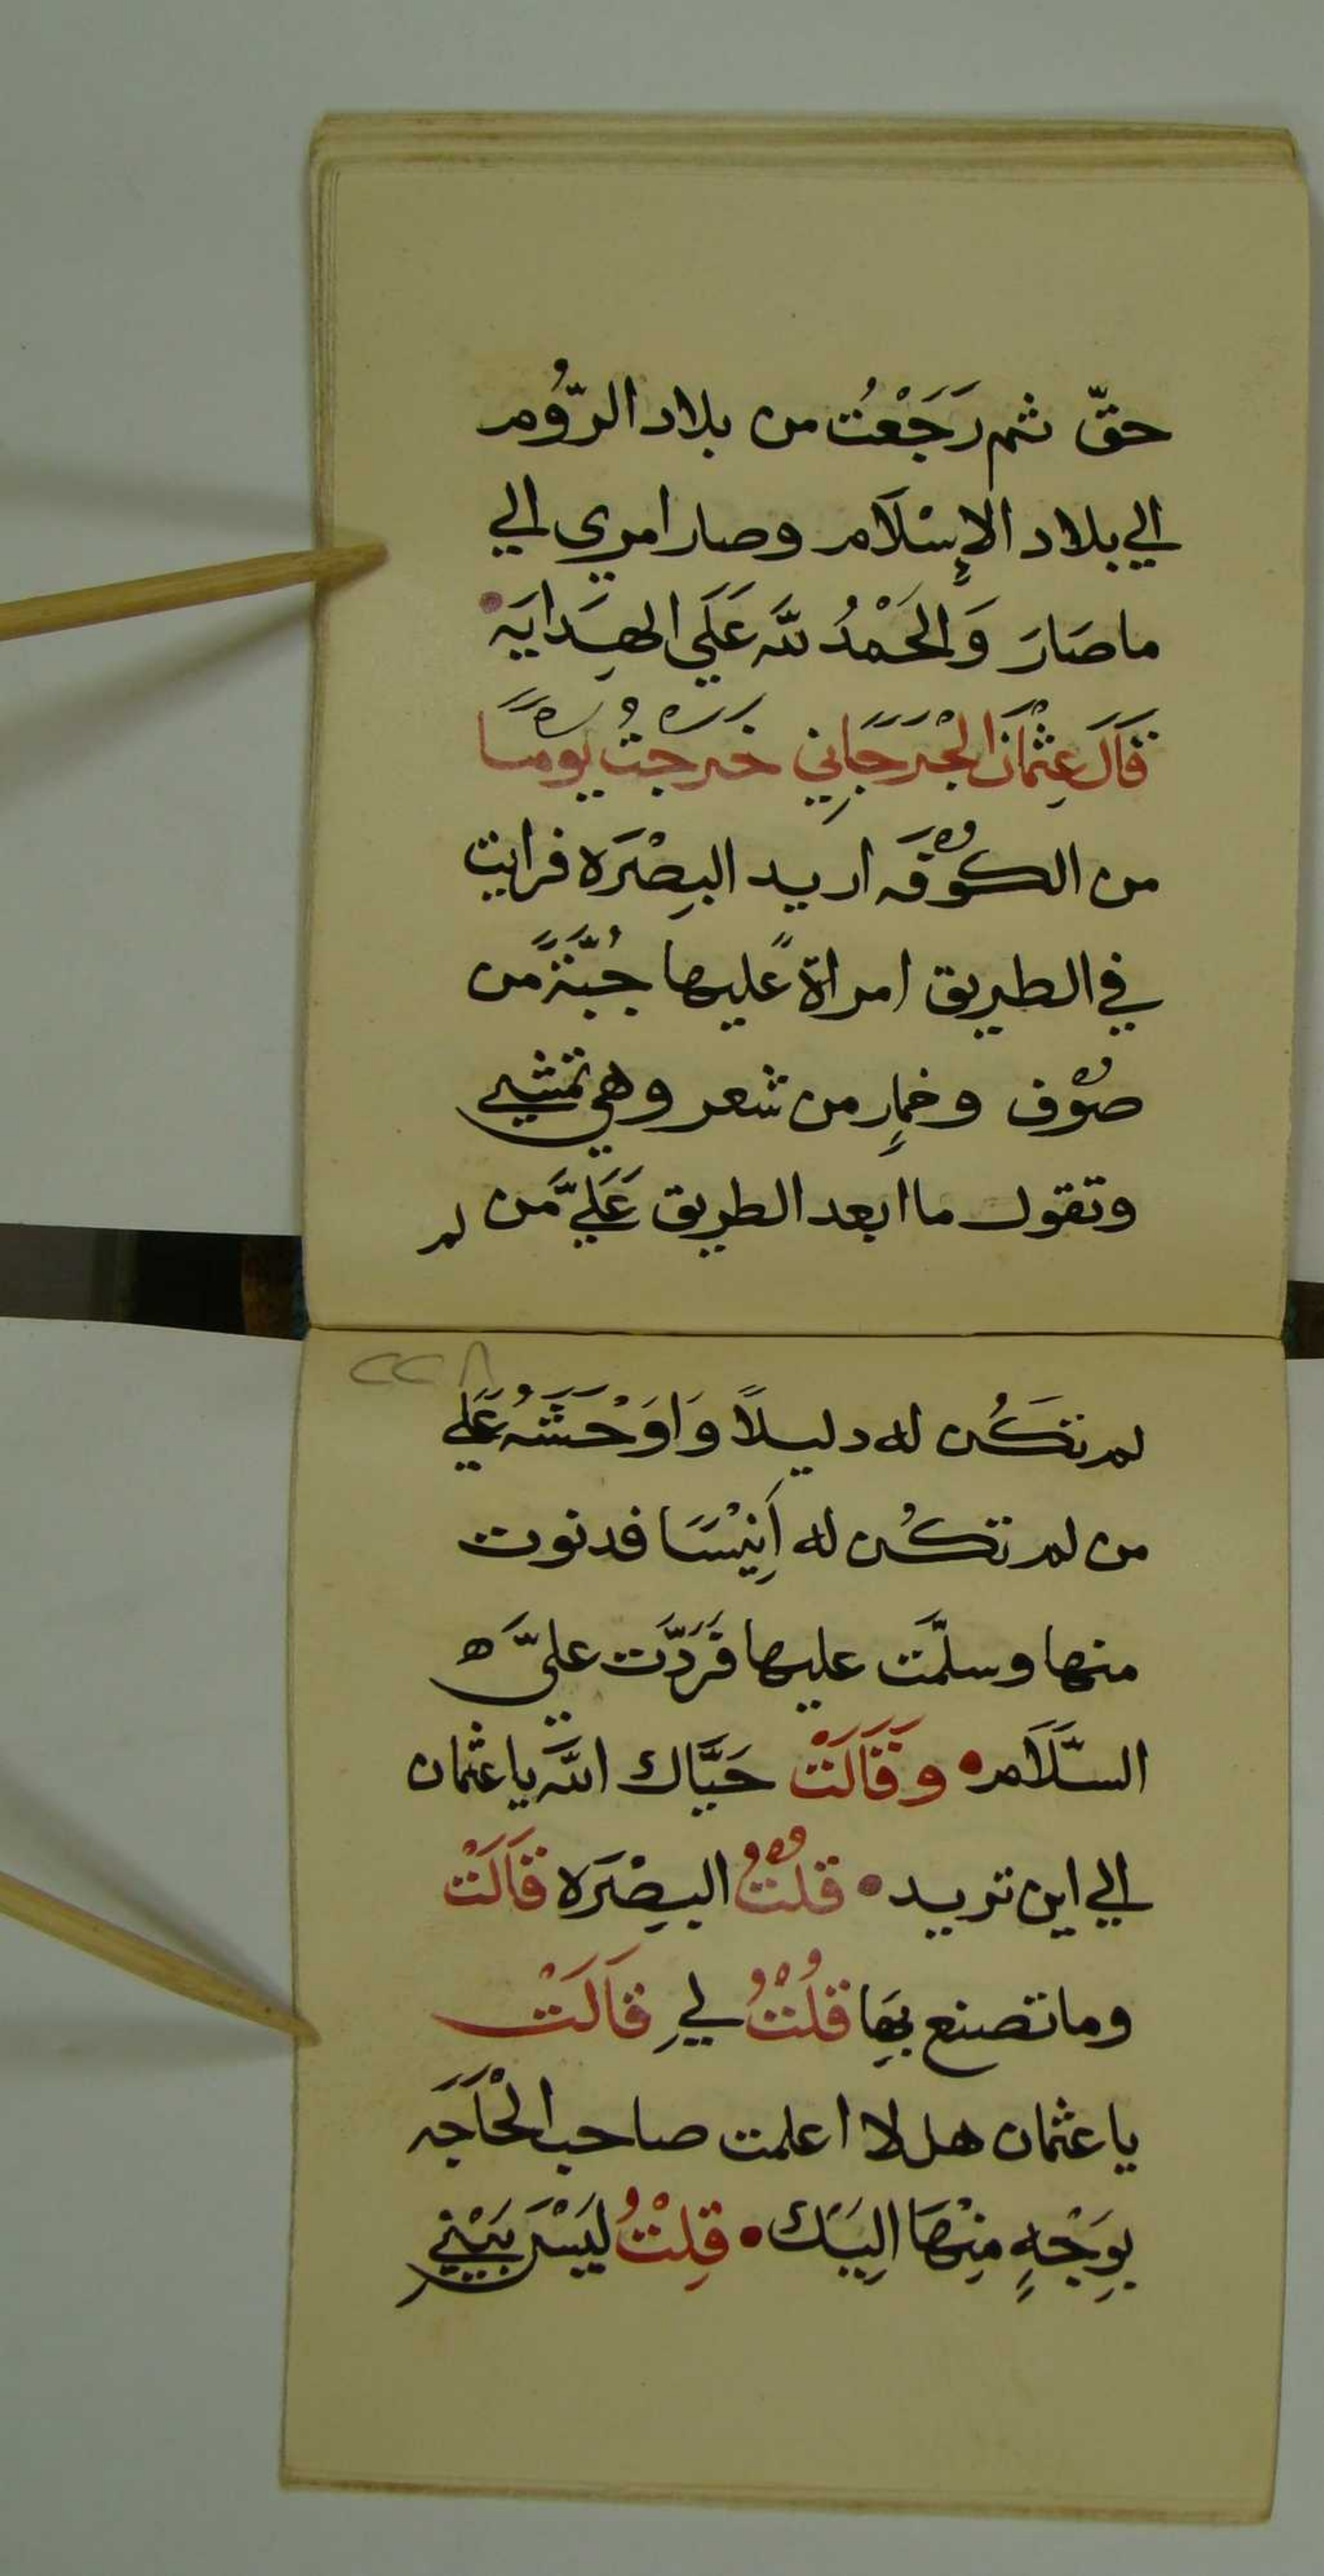 حقّ ثم رَجَعْتُ من بلاد الرّوُم
الي بلاد الإِسْلَام وصار امري الي
ما صَارَ وَالحَمْدُ لله عَلَي الهِدَايَه
قَالَ عِثْمان الجْرَجَانِي خَرَجْتُ يَوْمًا
من الكُوْفَه اريد البِصْرَه فرايت
في الطريق امراةً عليها جُبَّةً من
صُوْف وخمارٍ من شعر وهي تمشي
وتقول ما ابعد الطريق عَلَيَّ مَن لم
٢٢٨
لم تَكُن له دليلاً وَاوَحْشَتُه عَلَي
من لم تكُن له اَنِيْسًا فدنوت
منها وسلّمَت عليها فَرَدَّت عليَّ ه
السَّلَام وَقَالَتْ حَيَّاك الله يا عثمان
الي اين تريد قُلْتُ البِصْرَه قَالَتْ
وما تصنع بِهَا قُلْتُ لي قَالَتْ
يا عثمان هل لا اعلمت صاحب الْحَاجَه
بوَِجْهٍ مِنْهَا اليَك قِلْتُ لَيْسَ بَيْنِي